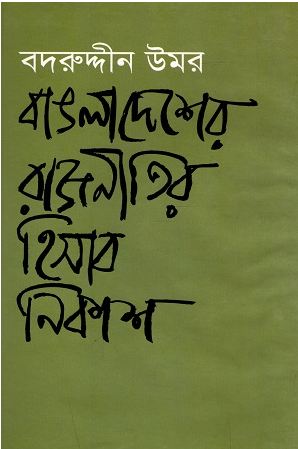 বদরুদ্দীন উমর
বাঙলাদেশের
রাজনীতির
হিসাব
নিকাশ